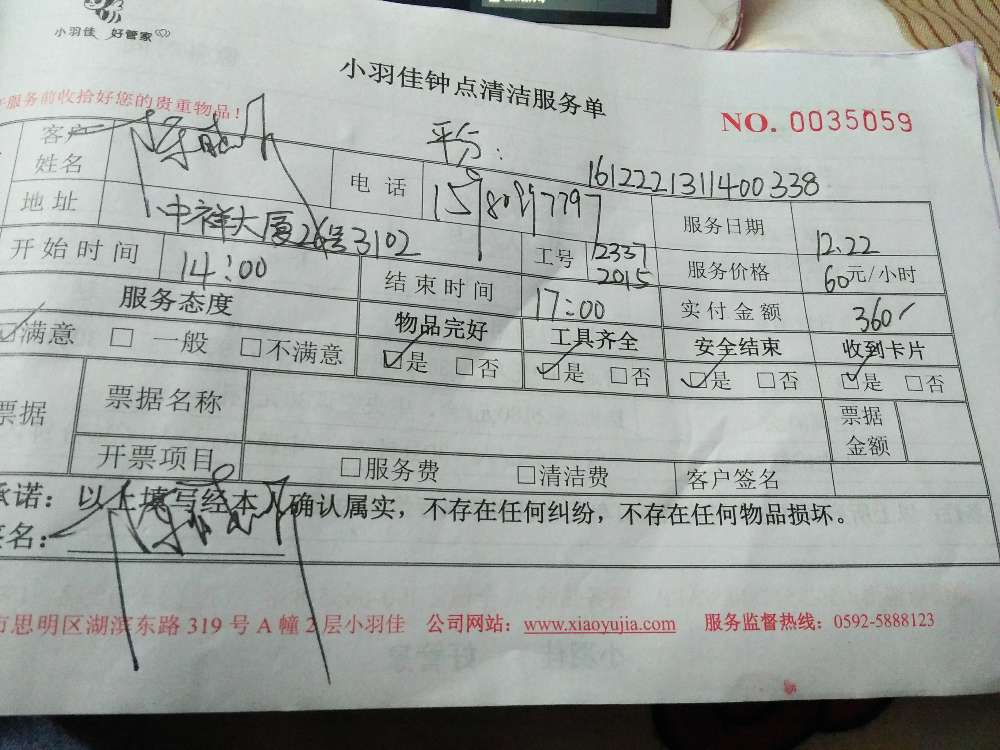 小羽佳 好管家
小羽佳钟点清洁服务单
服务前收拾好您的贵重物品！
NO. 0035059
平台：
1612221311400338
客户姓名
电 话
服务日期 12.22
地址 中祥大厦26号3102
工号 12337 2015
服务价格 60元/小时
开始时间 14:00
结束时间 17:00
实付金额 360
服务态度 物品完好 工具齐全 安全结束 收到卡片
☑满意 □一般 □不满意 ☑是 □否 ☑是 □否 ☑是 □否 ☑是 □否
票据 票据名称 票据金额
开票项目 □服务费 □清洁费 客户签名
承诺：以上填写经本人确认属实，不存在任何纠纷，不存在任何物品损坏。
签名：
市思明区湖滨东路 319 号 A 幢 2 层小羽佳 公司网站：www.xiaoyujia.com 服务监督热线：0592-5888123